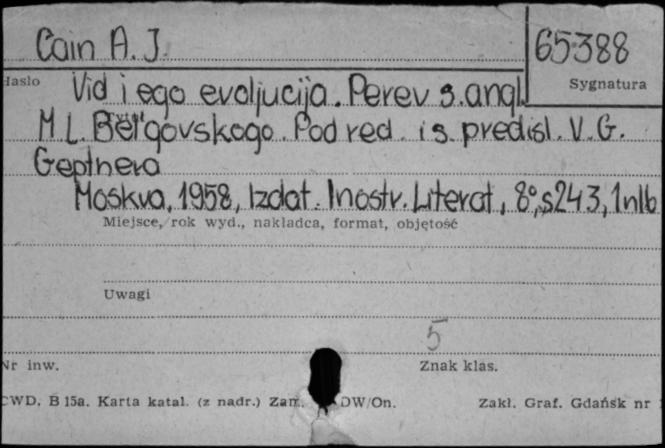 Cain A. J.
65388
Hasło
Sygnatura
Vid i ego evoljucija. Perev s. angl.
M L. Bel'govskogo. Pod red. i s. predisl. V. G.
Geptnera
Moskva, 1958, Izdat. Inostr. Literat, 8°, s243, 1nlb
Miejsce, rok wyd., nakładca, format, objętość
Uwagi
5
Nr inw.
Znak klas.
CWD, B 15a. Karta katal. (z nadr.) Zam. DW/On.
Zakł. Graf. Gdańsk nr